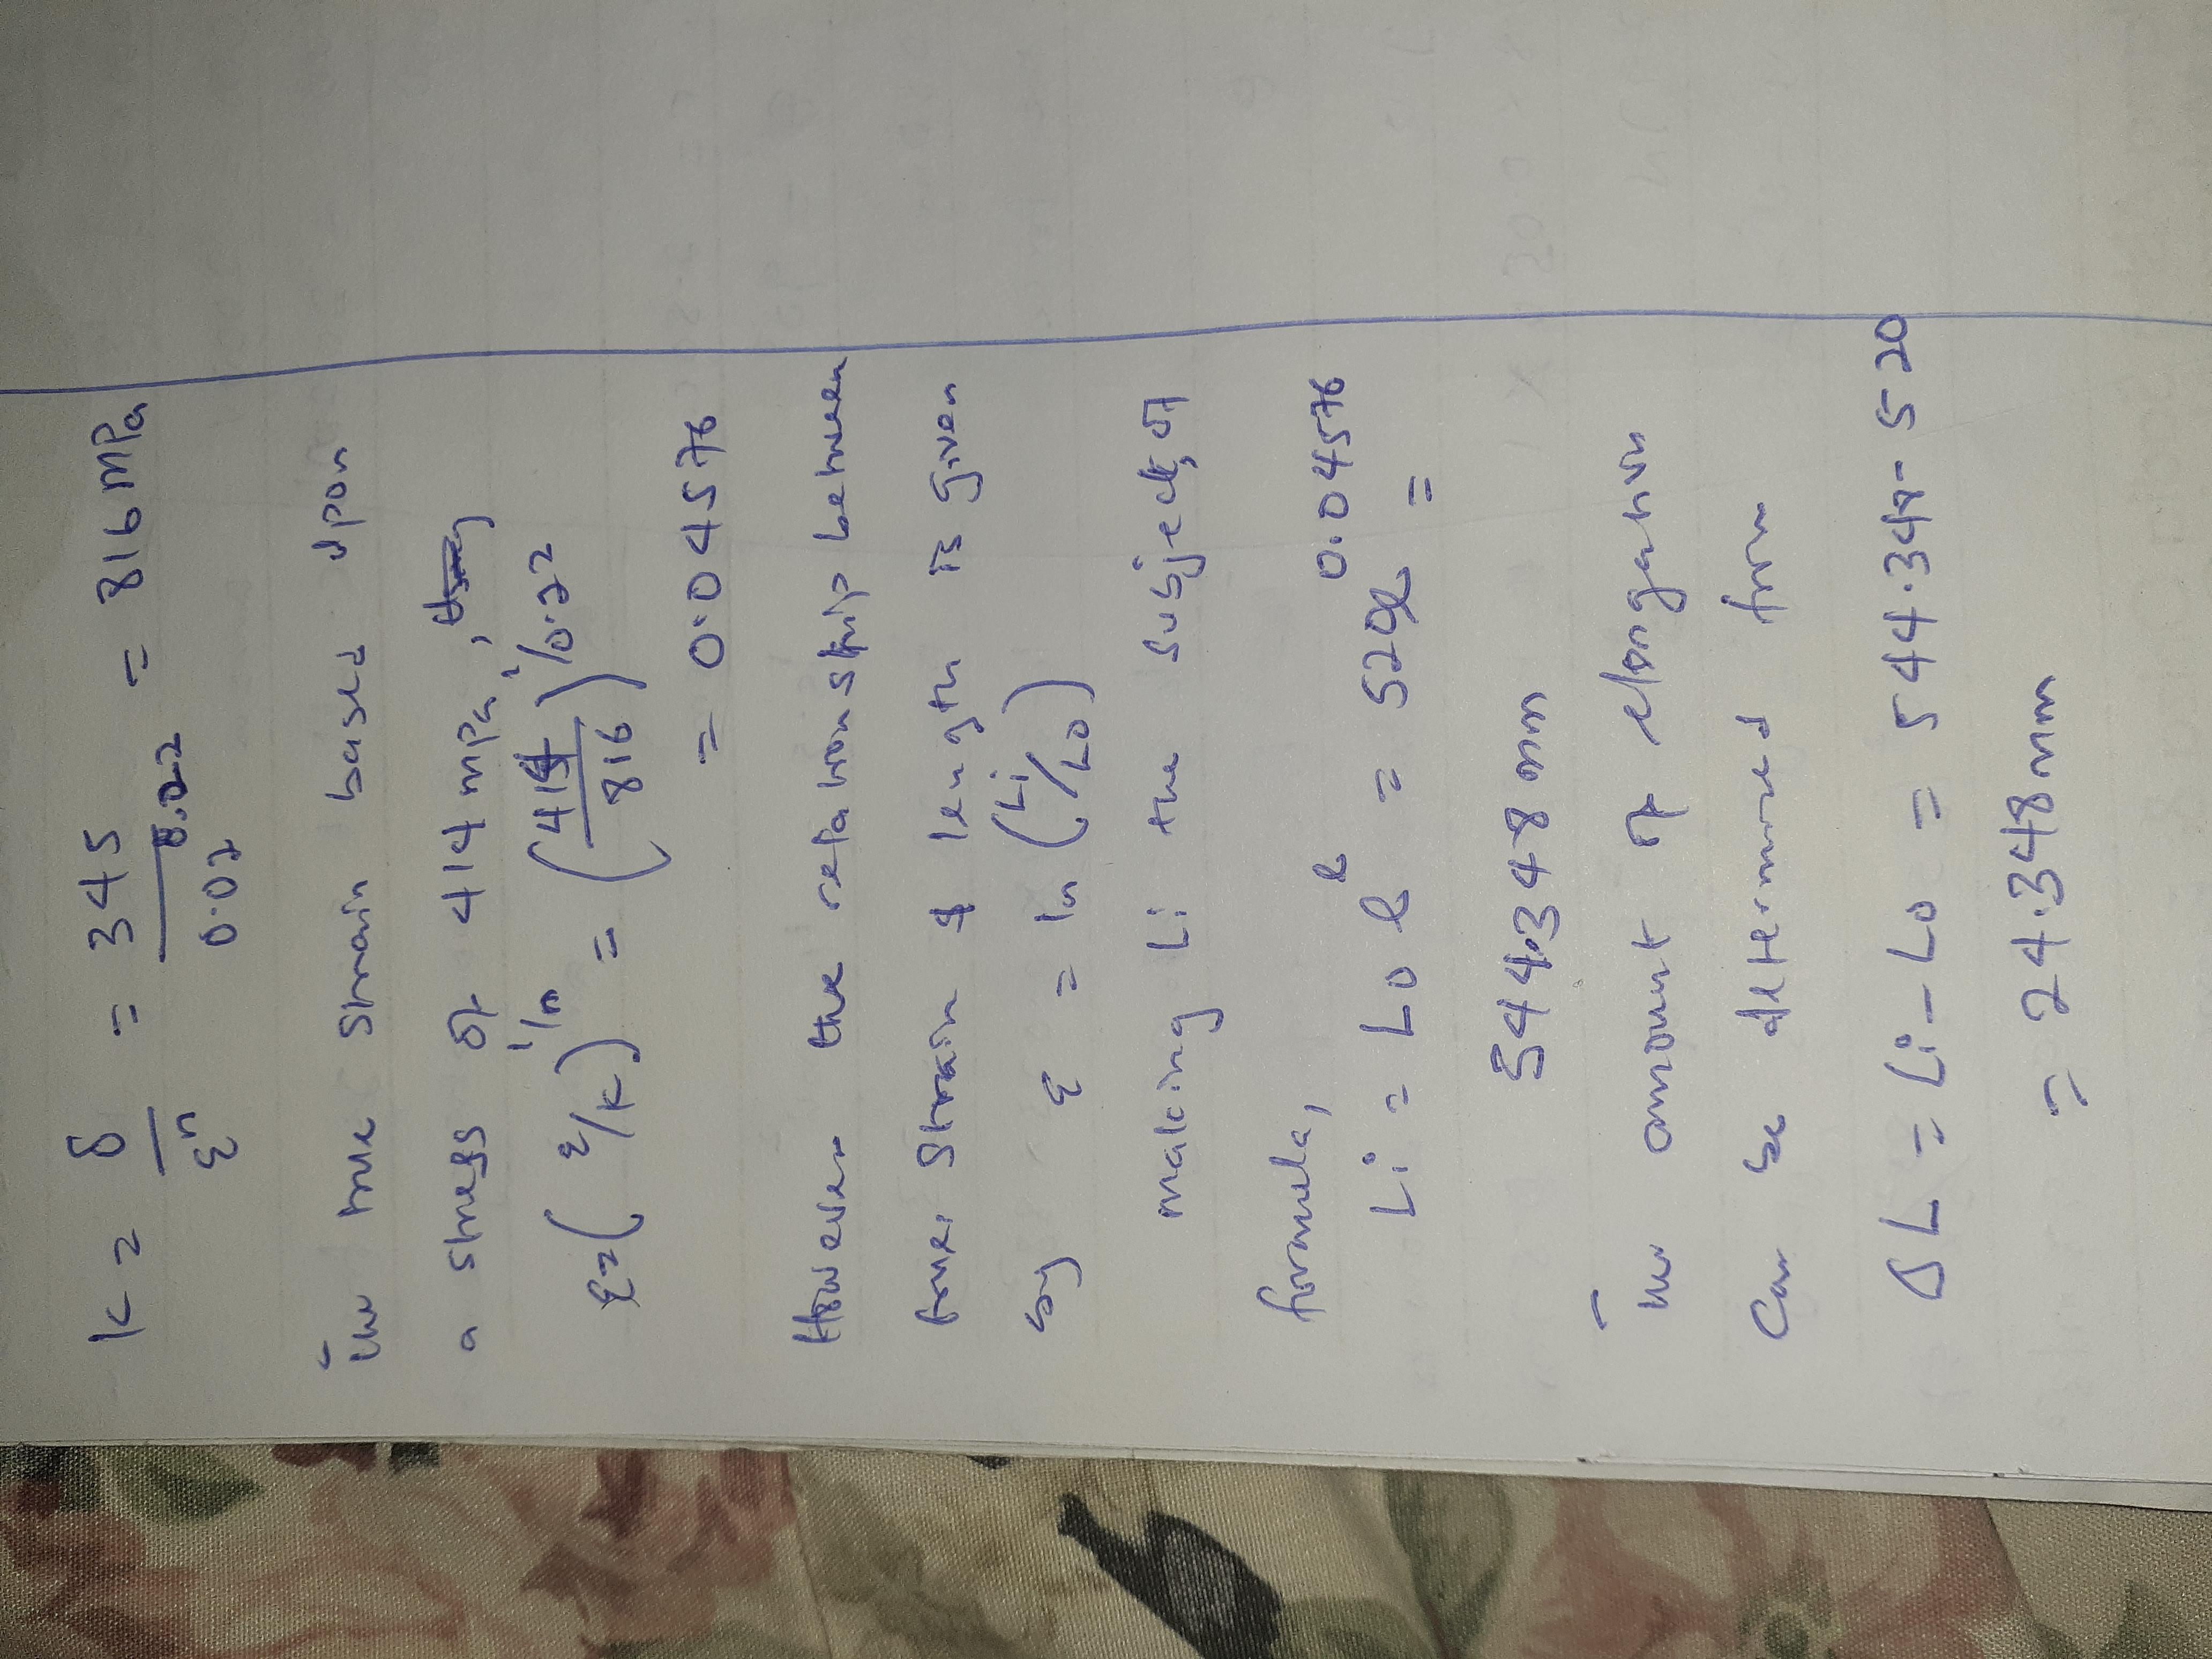 K = δ/εⁿ = 345/0.02^0.22 = 816 MPa
The true strain based upon
a stress of 414 mpa,
ε = (δ/K)^1/n = (414/816)^1/0.22
= 0.04576
However the relationship between
true strain & length is given
by ε = ln (Li/Lo)
making Li the subject of
formula,
Li = Lo e^ε = 520e^0.04576 =
544.348 mm
The amount of elongation
can be determined from
ΔL = Li - Lo = 544.348 - 520
= 24.348mm